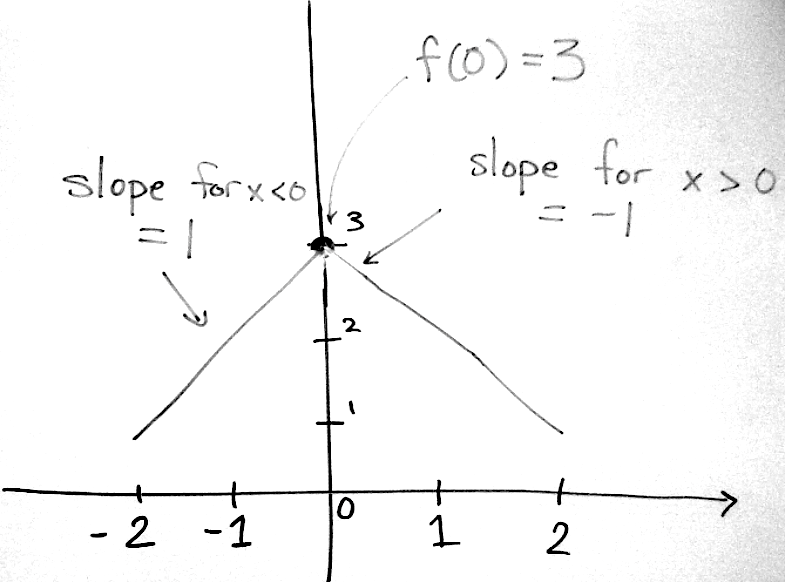 f(0) = 3
slope for x < 0
= 1
slope for x > 0
= -1
3
2
1
-2 -1 0 1 2